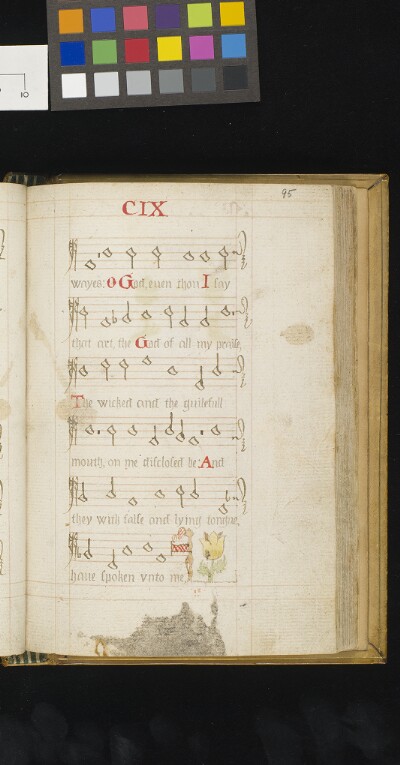 10
95
CIX
wayes: O God, euen thou I say
that art, the God of all my praise,
The wicked and the guilefull
mouth, on me disclosed be: And
they with false and lying tongue,
haue spoken vnto me